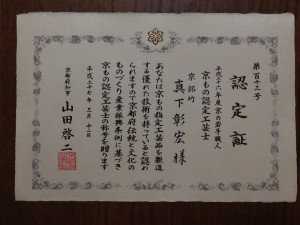 認定証
第百十三号
平成二十六年度京の若手職人
京もの認定工芸士
京銘竹
真下彰宏 様
あなたは京もの指定工芸品を製造
する優れた技術を持っていると認め
られますので京都府伝統と文化の
ものづくり産業振興条例に基づき
京もの認定工芸士の称号を贈ります
平成二十七年二月十二日
京都府知事 山田啓二